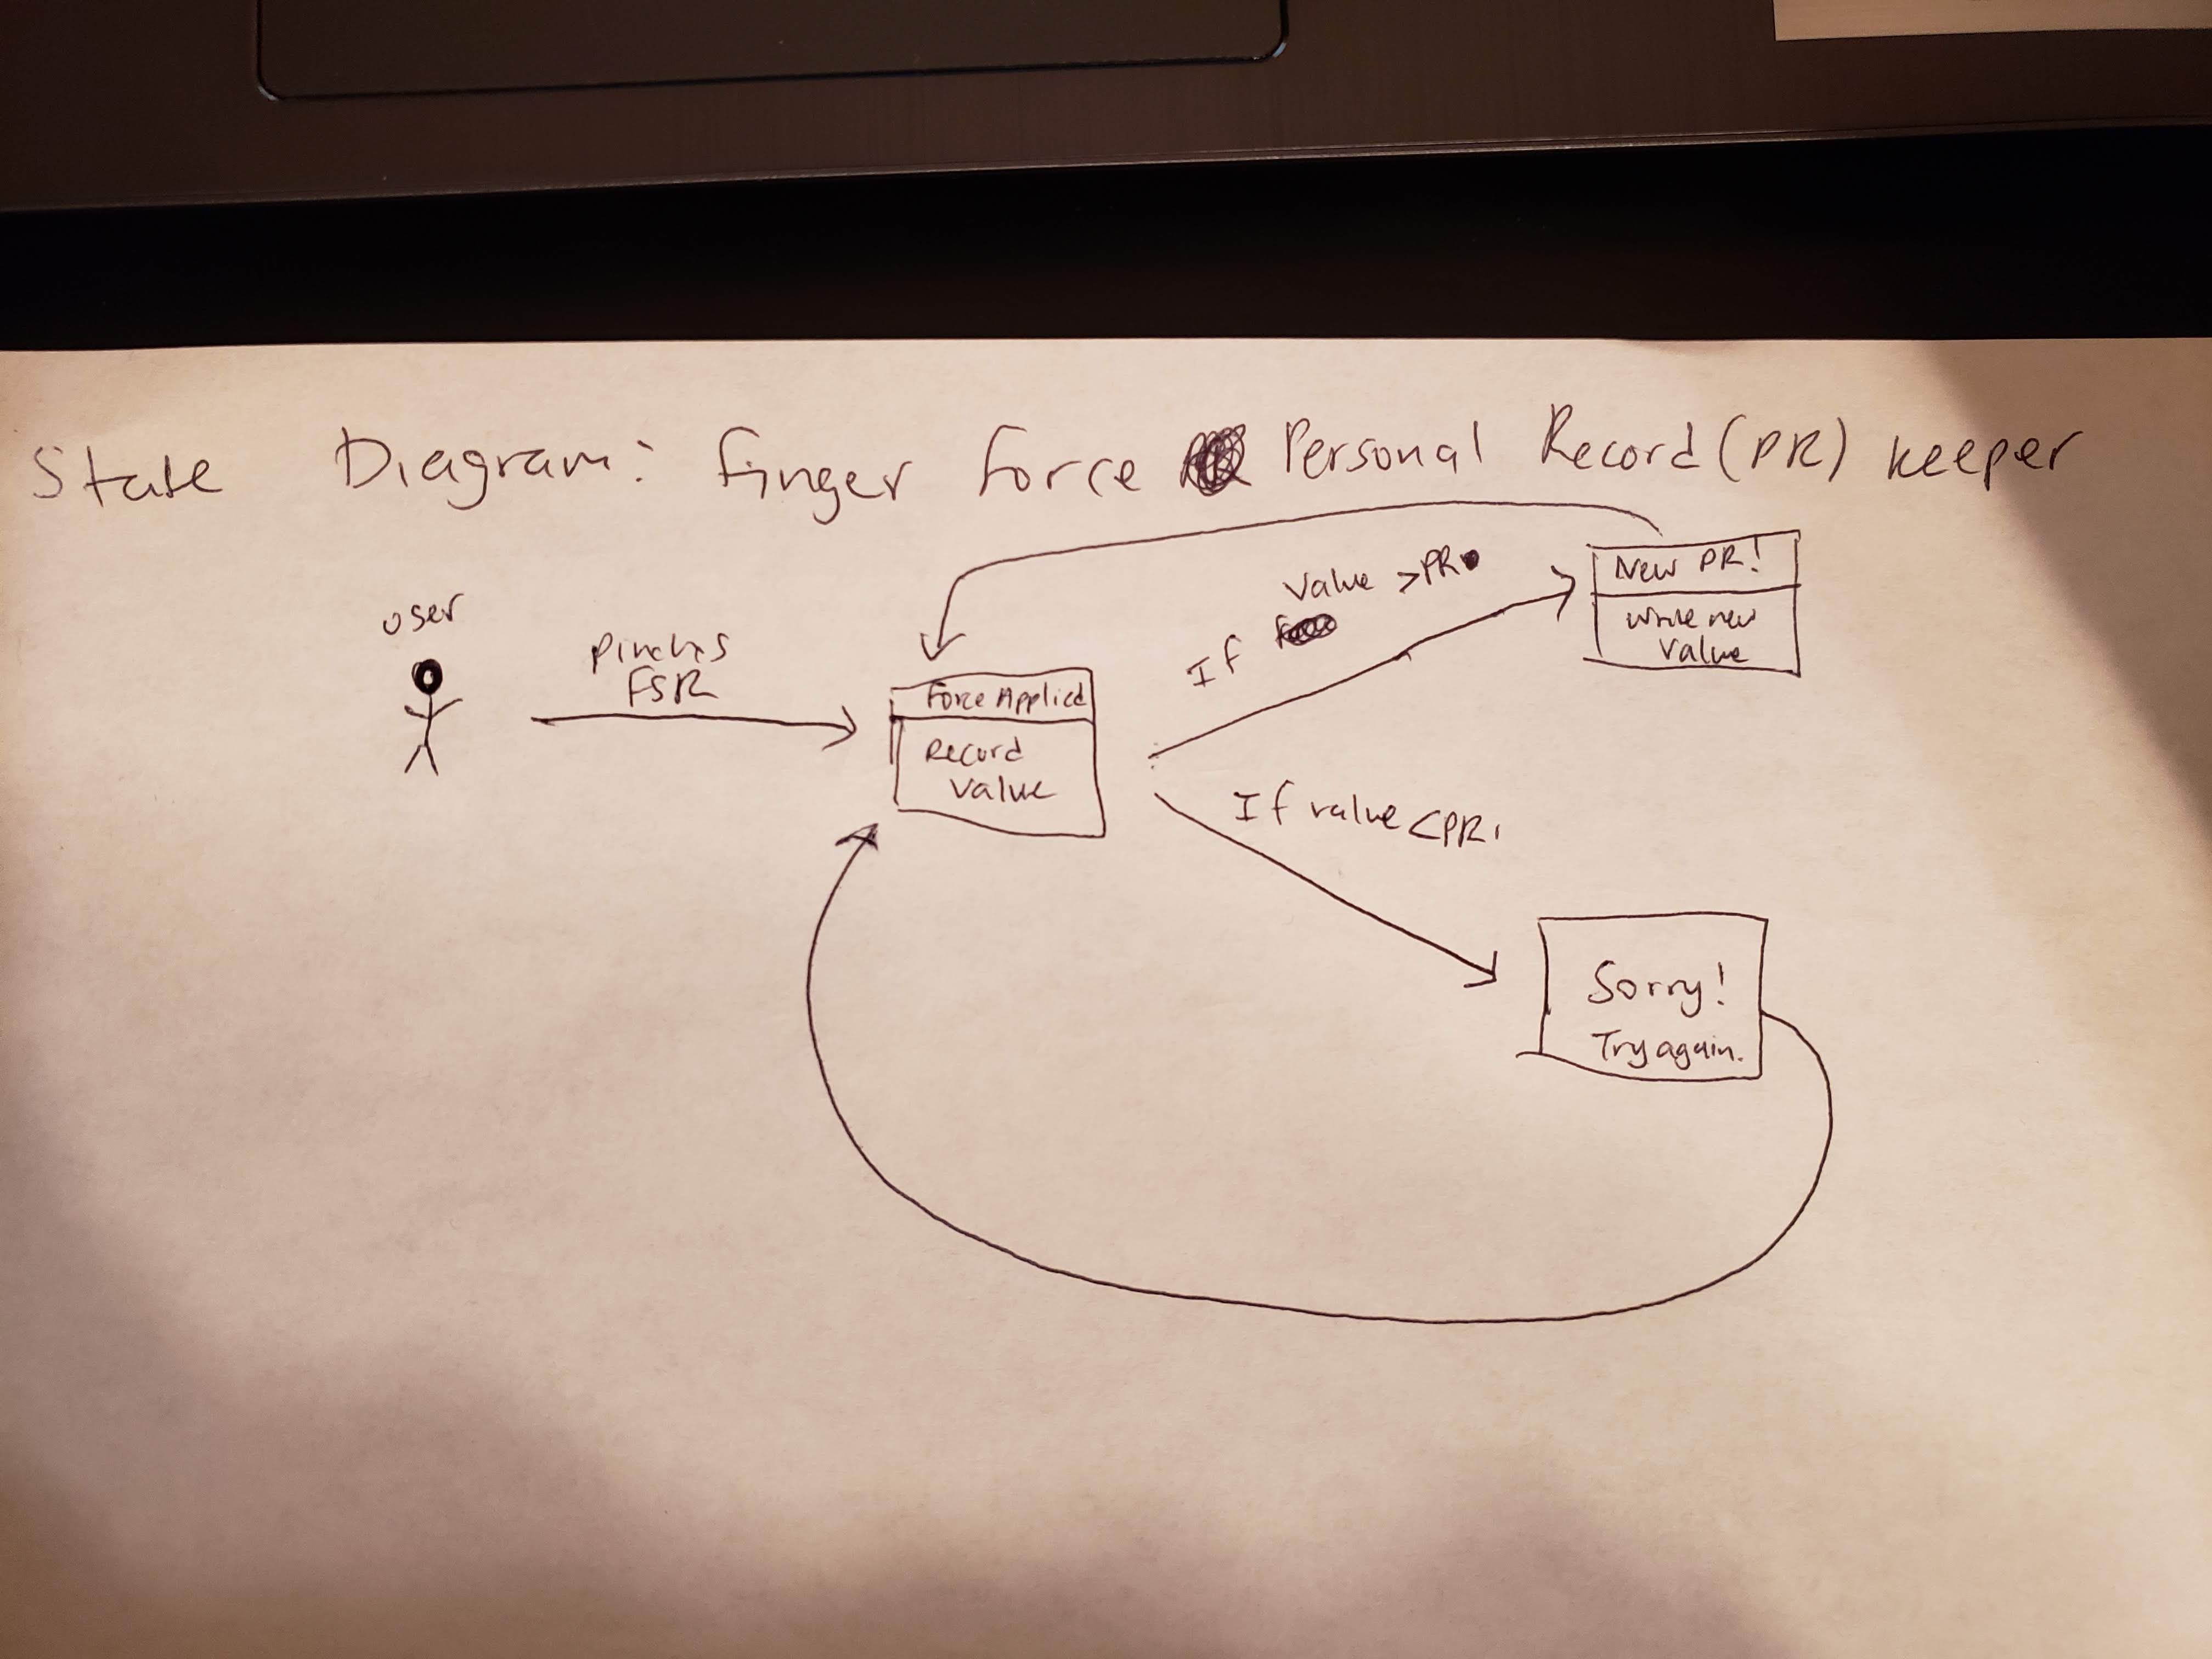 State Diagram: Finger Force Personal Record (PR) keeper
user
Pinches
FSR
Force Applied
Record
Value
If Value >PR
New PR!
write new
value
If value <PR,
Sorry!
Try again.